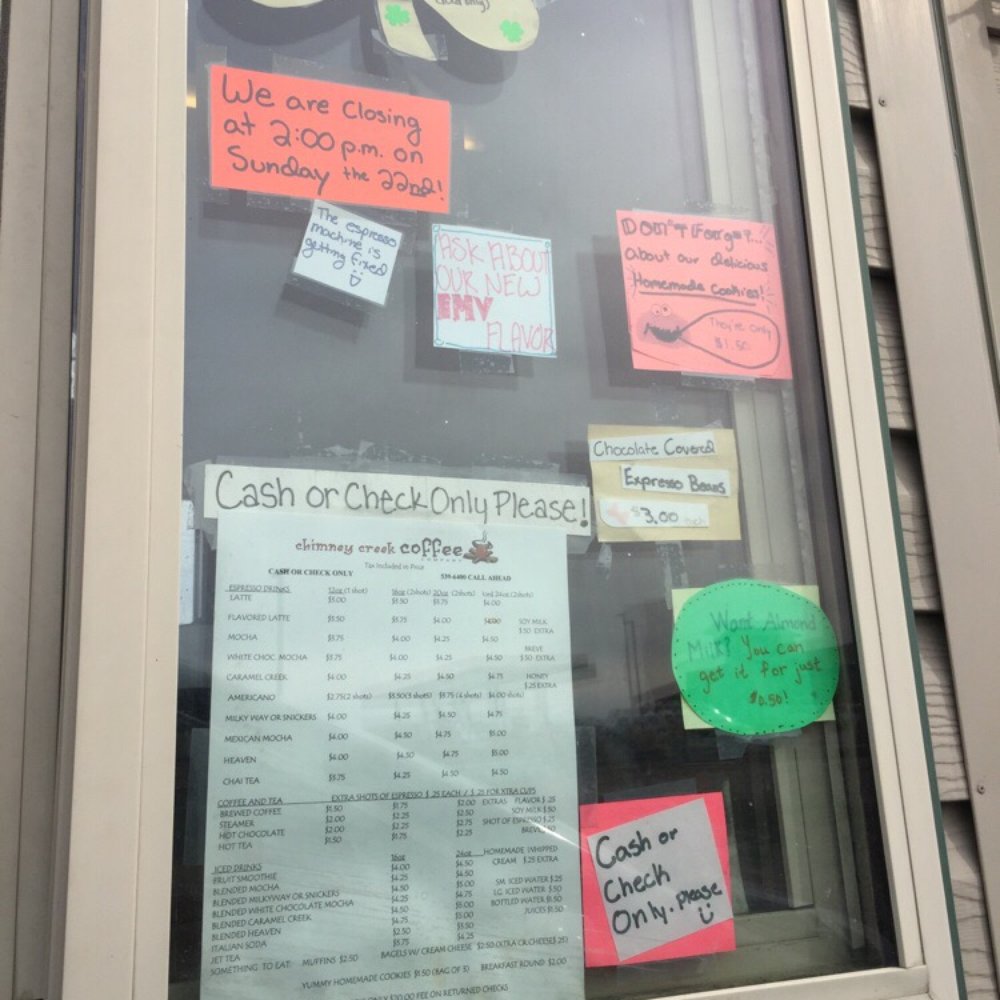 only)
We are Closing
at 2:00 p.m. on
Sunday the 22nd!
The espresso
machine is
getting fixed
ASK ABOUT
OUR NEW
EMV
FLAVOR
DON'T Forget...
about our delicious
Homemade Cookies!
They're Only
$1.50
Chocolate Covered
Expresso Beans
$3.00 each
Cash or Check Only Please!
chimney creek coffee
COMPANY
Tax Included in Price
CASH OR CHECK ONLY 539-6400 CALL AHEAD
ESPRESSO DRINKS 12oz (1 shot) 16oz (2shots) 20oz (2shots) Iced 24oz (2shots)
LATTE $3.00 $3.50 $3.75 $4.00
FLAVORED LATTE $3.50 $3.75 $4.00 SOY MILK
$.50 EXTRA
MOCHA $3.75 $4.00 $4.25 $4.50
BREVE
WHITE CHOC. MOCHA $3.75 $4.00 $4.25 $4.50 $.50 EXTRA
CARAMEL CREEK $4.00 $4.25 $4.50 $4.75 HONEY
$.25 EXTRA
AMERICANO $2.75(2 shots) $3.50(3 shots) $3.75 (4 shots) $4.00 shots)
MILKY WAY OR SNICKERS $4.00 $4.25 $4.50 $4.75
MEXICAN MOCHA $4.00 $4.50 $4.75 $5.00
HEAVEN $4.00 $4.50 $4.75 $5.00
CHAI TEA $3.75 $4.25 $4.50 $4.50
EXTRA SHOTS OF ESPRESSO $.25 EACH / $.25 FOR XTRA CUPS
COFFEE AND TEA
BREWED COFFEE $1.50 $1.75 $2.00 EXTRAS FLAVOR $.25
STEAMER $2.00 $2.25 $2.50 SOY MILK $.50
HOT CHOCOLATE $2.00 $2.25 $2.75 SHOT OF ESPRESSO $.25
HOT TEA $1.50 $1.75 $2.25 BREVE $.50
ICED DRINKS 16oz 24oz HOMEMADE WHIPPED
FRUIT SMOOTHIE $4.00 $4.50 CREAM $.25 EXTRA
BLENDED MOCHA $4.25 $4.50
BLENDED MILKYWAY OR SNICKERS $4.50 $5.00 SM. ICED WATER $.25
BLENDED WHITE CHOCOLATE MOCHA $4.25 $4.75 LG. ICED WATER $.50
BLENDED CARAMEL CREEK $4.50 $5.00 BOTTLED WATER $1.50
BLENDED HEAVEN $4.75 $5.00 JUICES $1.50
ITALIAN SODA $2.50 $3.50
JET TEA $3.75 $4.25
SOMETHING TO EAT: MUFFINS $2.50 BAGELS W/ CREAM CHEESE $2.50 (XTRA CR.CHEESE$.25)
YUMMY HOMEMADE COOKIES $1.50 (BAG OF 3) BREAKFAST ROUND $2.00
ONLY $30.00 FEE ON RETURNED CHECKS
Want Almond
Milk? You can
get it for just
$0.50!
Cash or
Check
Only. please